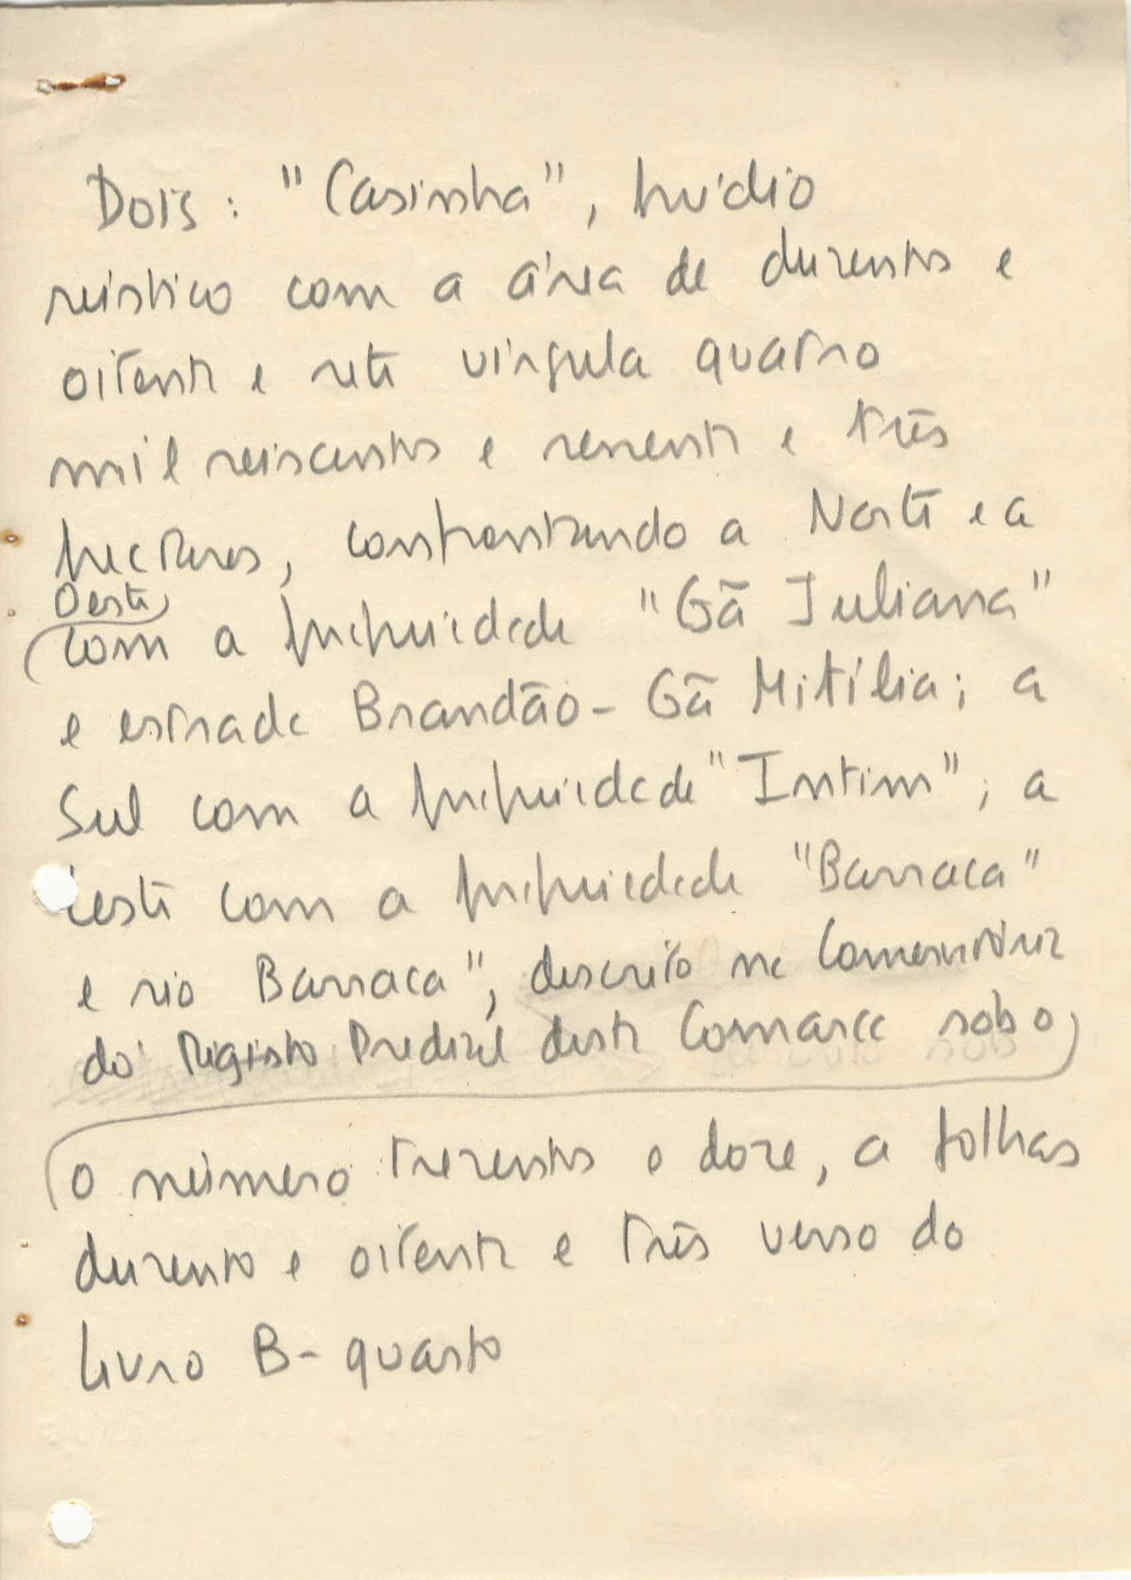 Dois: "Casinha", prédio
rústico com a área de duzentos e
oitenta e sete vírgula quatro
mil seiscentos e sessenta e três
hectares, confrontando a Norte e a
Oeste
com a propriedade "Gã Juliana"
e estrada Brandão - Gã Mitília; a
Sul com a propriedade "Intim"; a
Leste com a propriedade "Barraca"
e rio Barraca", descrito na Conservatória
do Registo Predial desta Comarca sob o
o número trezentos e doze, a folhas
duzento e oitenta e três verso do
livro B-quarto